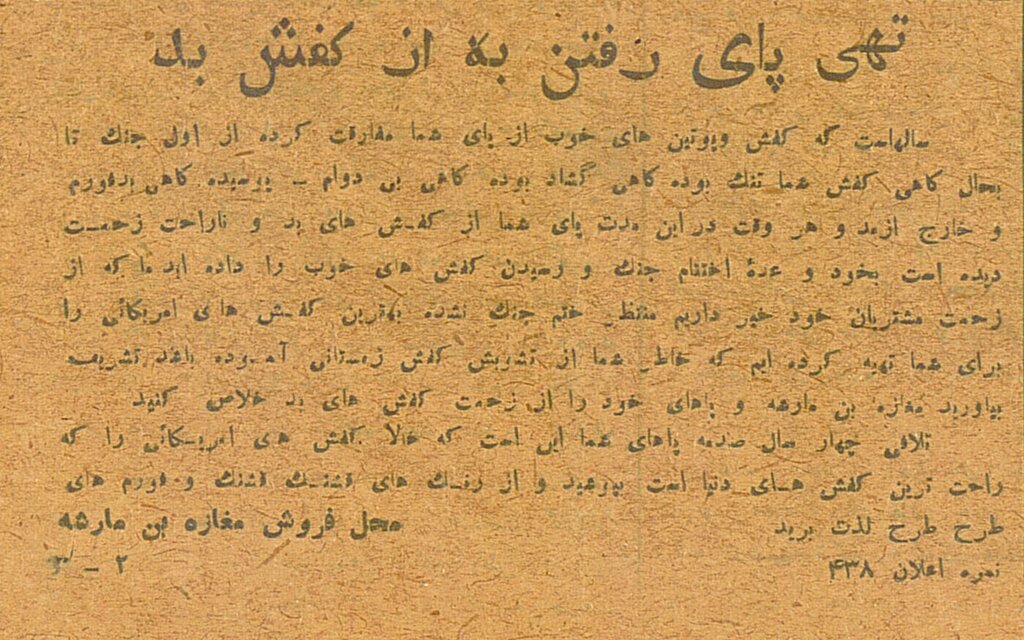 تهی پای رفتن به از کفش بد
سالهاست که کفش وپوتین های خوب از پای شما مفارقت کرده از اول جنك تا
بحال گاهی کفش شما تنك بوده گاهی گشاد بوده گاهی بی دوام ـ پوسیده گاهی بدفورم
و خارج ازمد و هر وقت در این مدت پای شما از کفش های بد و ناراحت زحمت
دیده است بخود و عدۀ اختتام جنك و رسیدن کفش های خوب را داده اید ما که از
زحمت مشتریان خود خبر داریم منتظر ختم جنك نشده بهترین کفش های امریکائی را
برای شما تهیه کرده ایم که خاطر شما از تشویش کفش زمستانی آسوده باشد تشریف
بیاورید مغازه بن مارشه و پاهای خود را از زحمت کفش های بد خلاص کنید
تلافی چهار سال صدمه پاهای شما این است که حالا کفش های امریکائی را که
راحت ترین کفش هـای دنیا است بپوشید و از رنـك های قشنـك قشنك و فورم های
طرح طرح لذت برید
محل فروش مغازه بن مارشه
نمره اعلان ۴۳۸
۲ ـ ۳